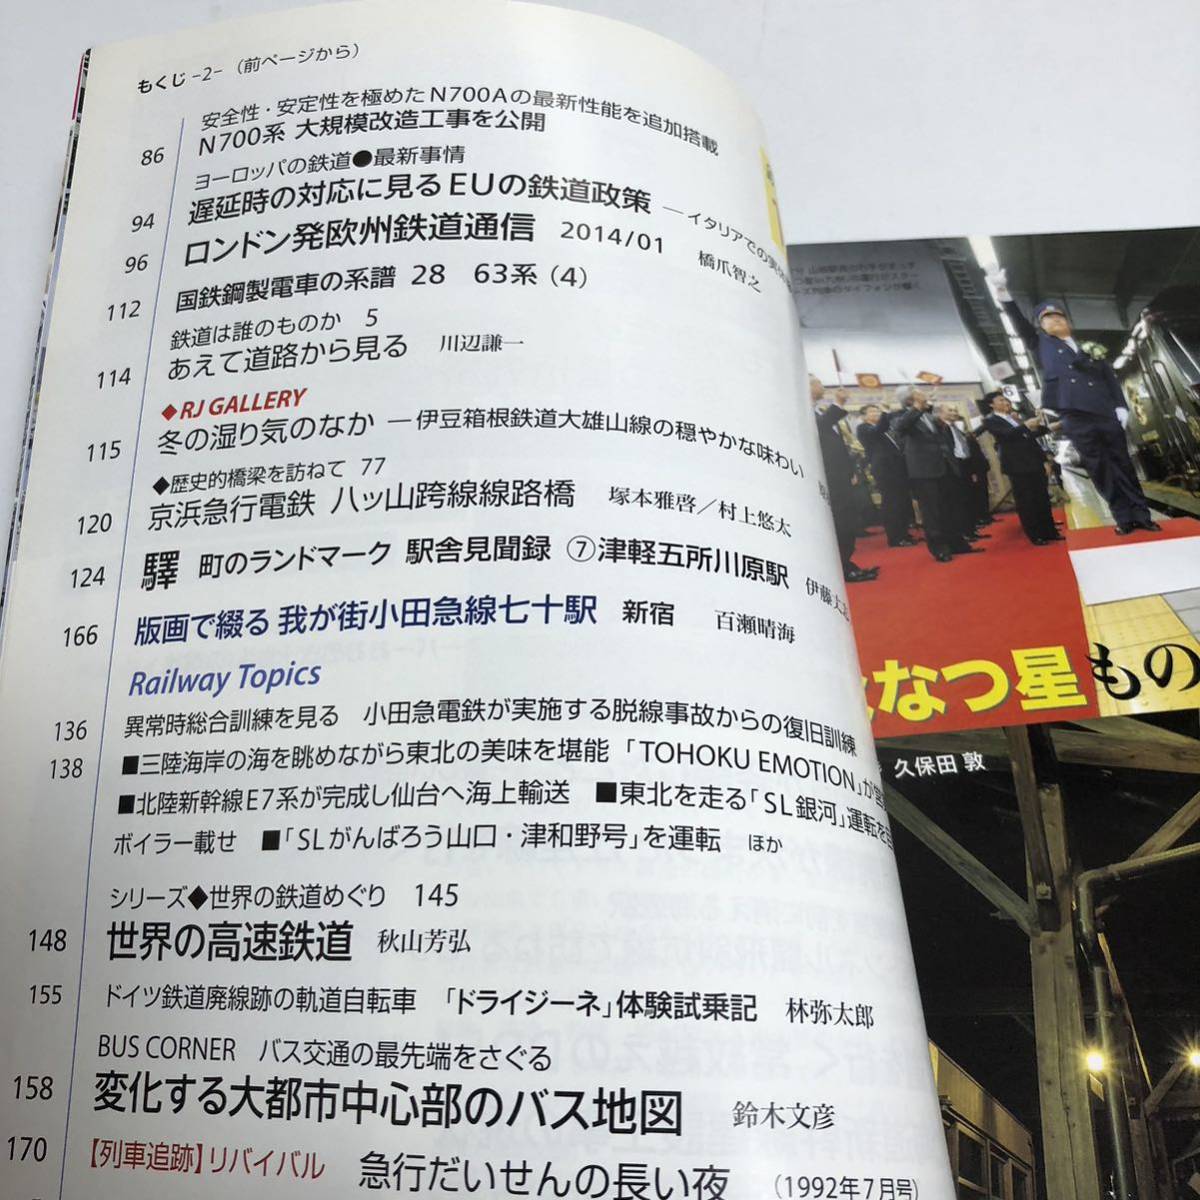 もくじ -2- （前ページから）
安全性・安定性を極めたN700Aの最新性能を追加搭載
86 N700系 大規模改造工事を公開
ヨーロッパの鉄道●最新事情
94 遅延時の対応に見るEUの鉄道政策 ―イタリアでの
96 ロンドン発欧州鉄道通信 2014/01 橋爪智之
112 国鉄鋼製電車の系譜 28 63系（4）
鉄道は誰のものか 5
114 あえて道路から見る 川辺謙一
◆RJ GALLERY
115 冬の湿り気のなか ―伊豆箱根鉄道大雄山線の穏やかな味わい
◆歴史的橋梁を訪ねて 77
120 京浜急行電鉄 八ッ山跨線線路橋 塚本雅啓／村上悠太
124 驛 町のランドマーク 駅舎見聞録 ⑦津軽五所川原駅 伊藤丈志
166 版画で綴る 我が街小田急線七十駅 新宿 百瀬晴海
Railway Topics
136 異常時総合訓練を見る 小田急電鉄が実施する脱線事故からの復旧訓練
138 ■三陸海岸の海を眺めながら東北の美味を堪能 「TOHOKU EMOTION」が
■北陸新幹線E7系が完成し仙台へ海上輸送 ■東北を走る「SL銀河」運転を
ボイラー載せ ■「SLがんばろう山口・津和野号」を運転 ほか
シリーズ◆世界の鉄道めぐり 145
148 世界の高速鉄道 秋山芳弘
155 ドイツ鉄道廃線跡の軌道自転車 「ドライジーネ」体験試乗記 林弥太郎
BUS CORNER バス交通の最先端をさぐる
158 変化する大都市中心部のバス地図 鈴木文彦
170 【列車追跡】リバイバル 急行だいせんの長い夜 （1992年7月号）
なつ星もの
久保田 敦